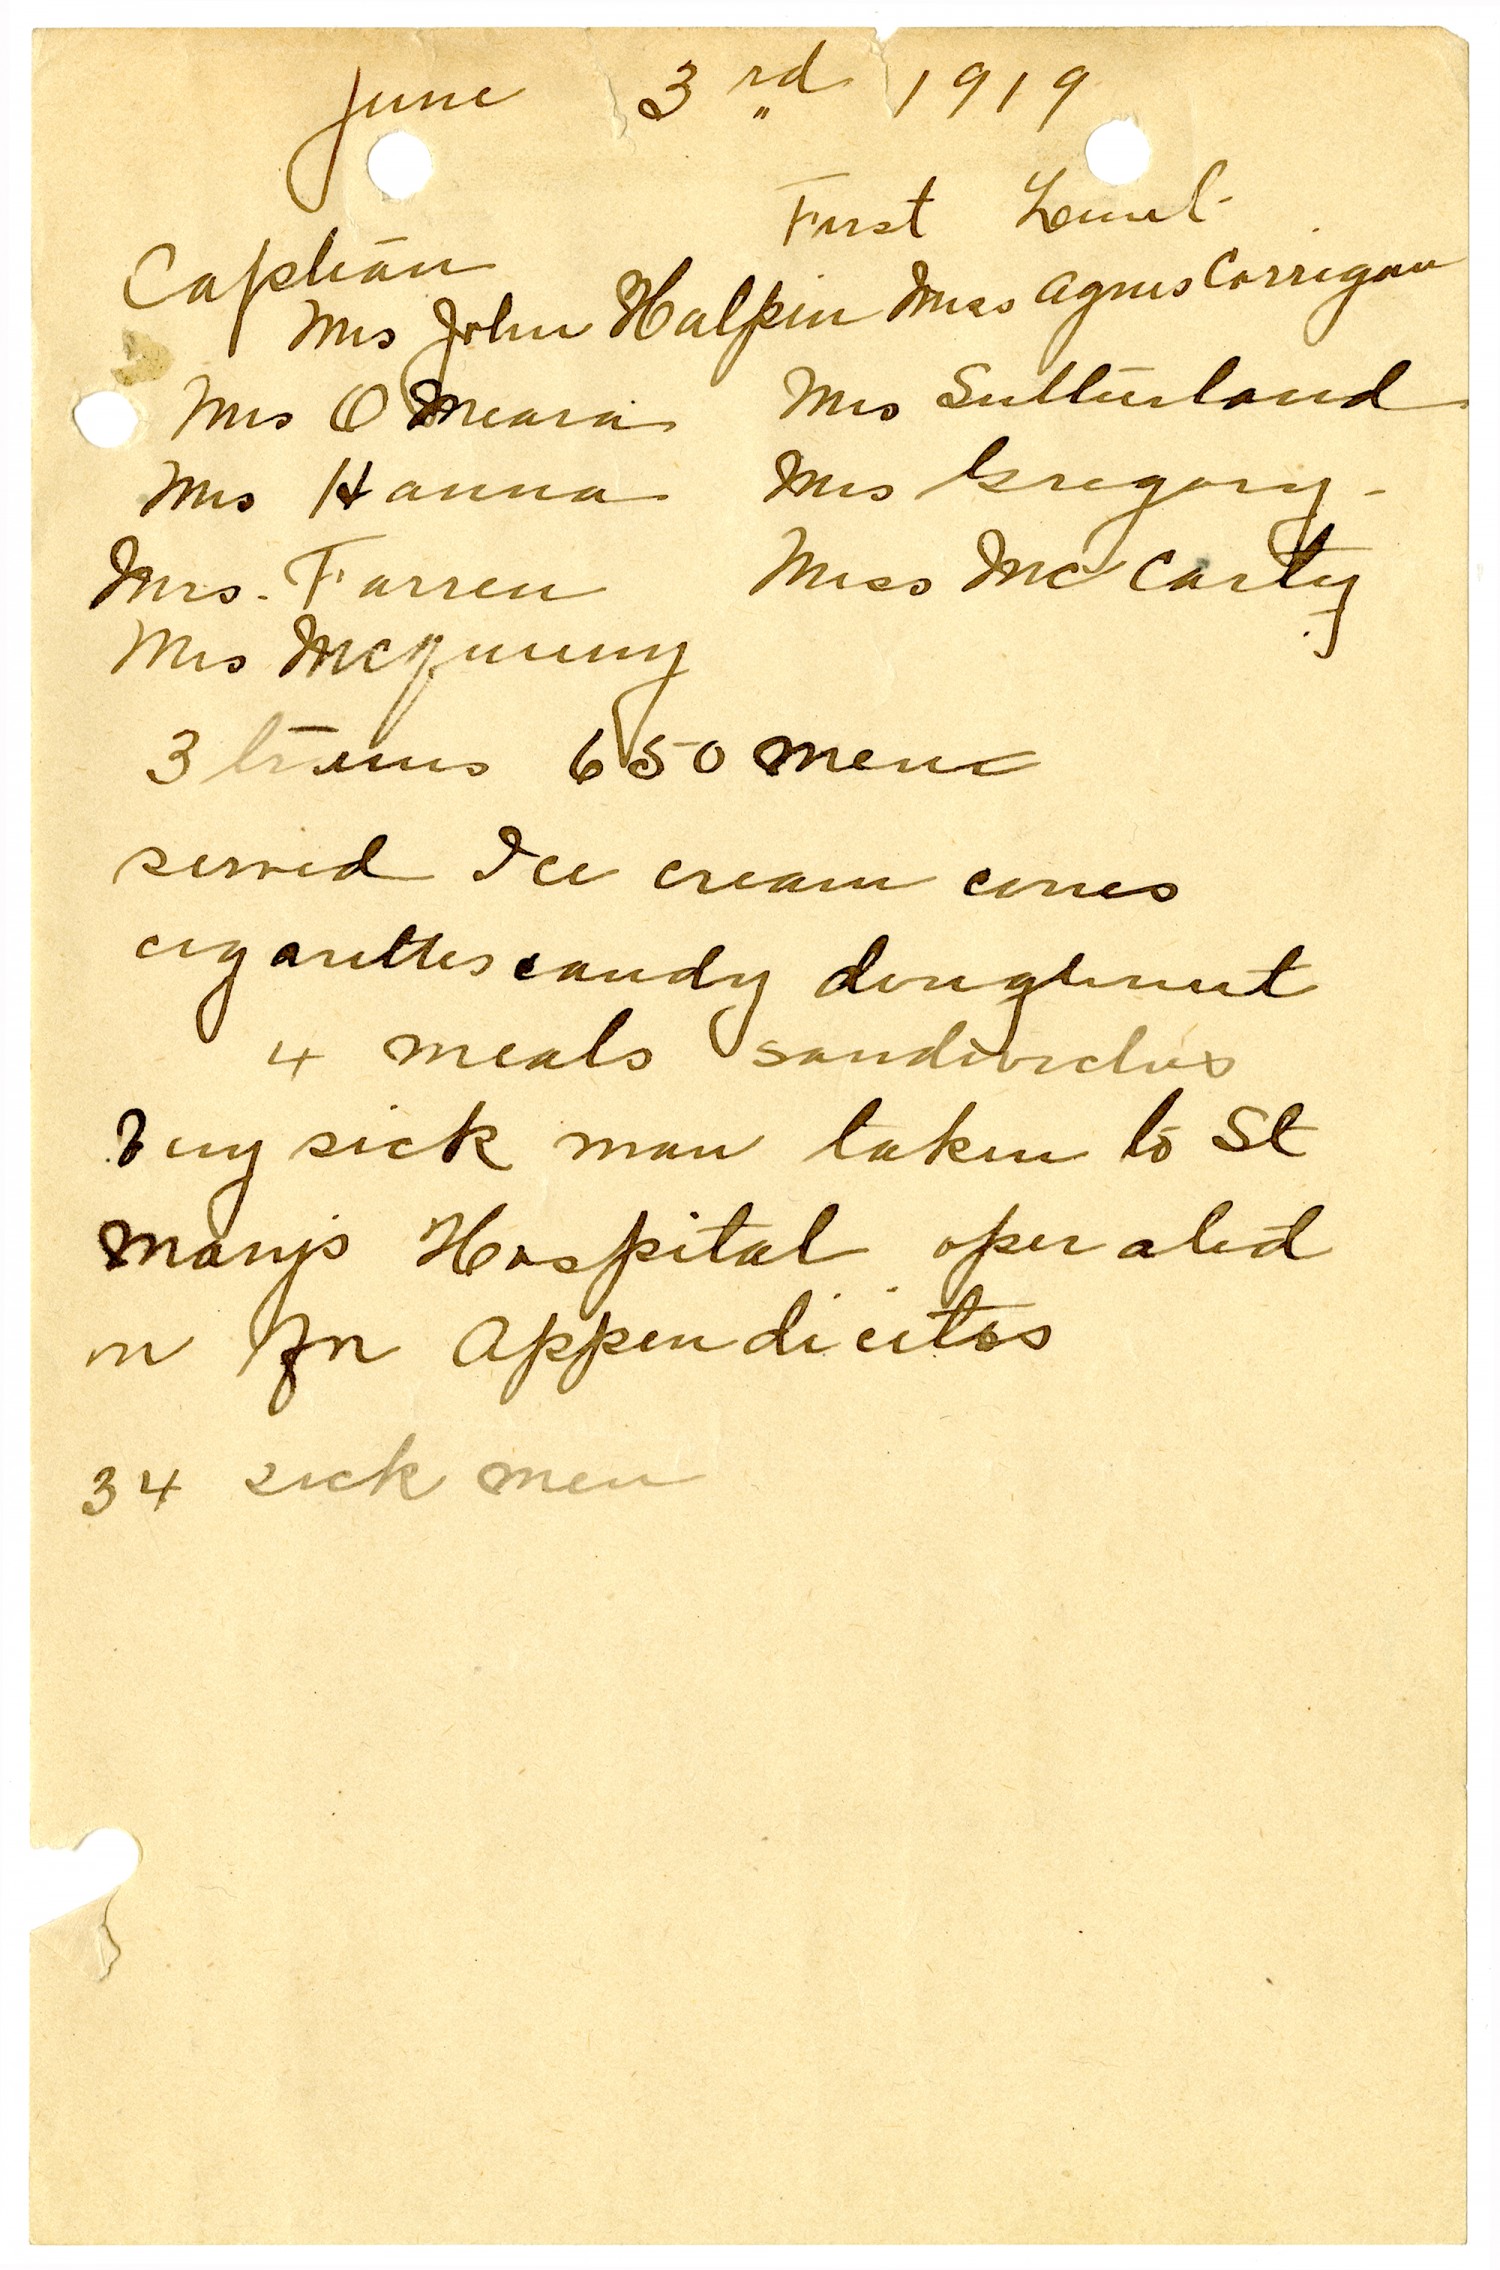 June 3rd 1919
First Leuit-
Captian
Mrs John Halpin Miss Agnes Corrigan
Mrs O Meara Mrs Sutterland
Mrs Hanna Mrs Gregory -
Mrs. Farren Miss McCarty
Mrs
3 trains 650 men
served Ice cream cones
cigarettes candy doughnut
4 meals sandwiches
Very sick man taken to St
Marys Hospital operated
on for Appendicites
34 sick men